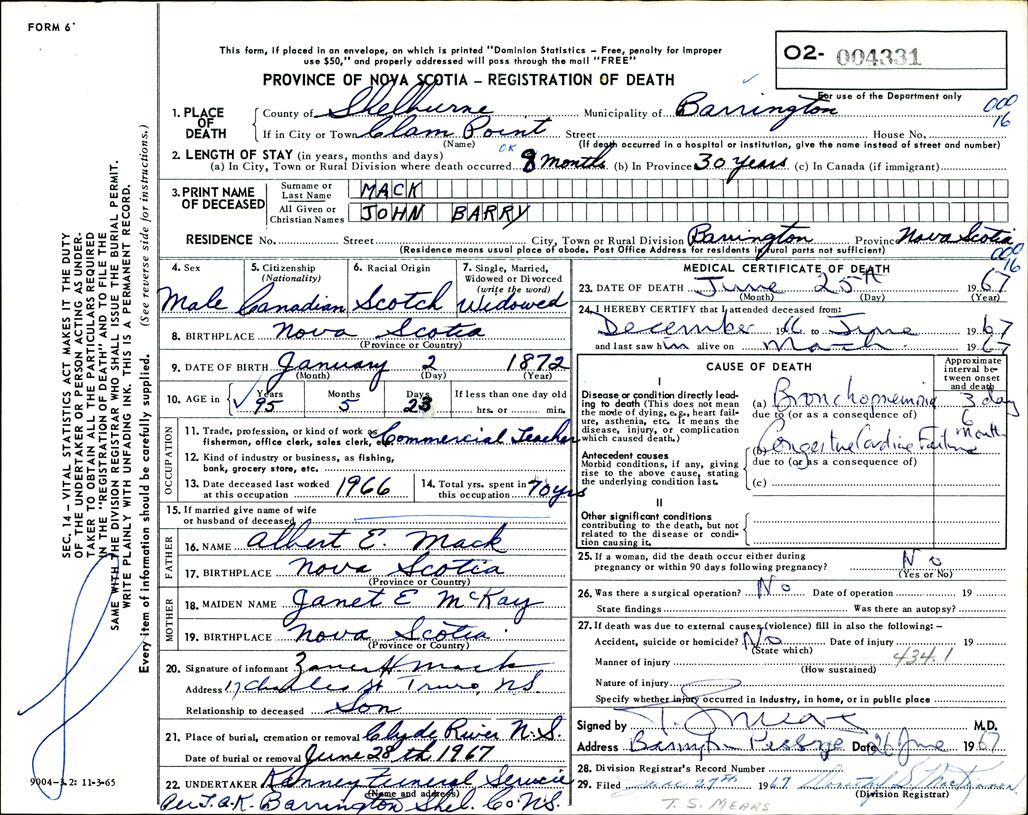 FORM 6
This form, if placed in an envelope, on which is printed "Dominion Statistics – Free, penalty for improper
use $50," and properly addressed will pass through the mail "FREE"
PROVINCE OF NOVA SCOTIA – REGISTRATION OF DEATH
02- 004331
For use of the Department only
000
16
1. PLACE OF DEATH
County of Shelburne Municipality of Barrington
If in City or Town Clam Point Street House No.
(Name) (If death occurred in a hospital or institution, give the name instead of street and number)
OK
2. LENGTH OF STAY (in years, months and days)
(a) In City, Town or Rural Division where death occurred 8 months (b) In Province 30 years (c) In Canada (if immigrant)
3. PRINT NAME OF DECEASED
Surname or Last Name MACK
All Given or Christian Names JOHN BARRY
RESIDENCE No. Street City, Town or Rural Division Barrington Province Nova Scotia
(Residence means usual place of abode. Post Office Address for residents in rural parts not sufficient)
000
16
4. Sex Male
5. Citizenship (Nationality) Canadian
6. Racial Origin Scotch
7. Single, Married, Widowed or Divorced (write the word) Widowed
8. BIRTHPLACE Nova Scotia
(Province or Country)
9. DATE OF BIRTH January 2 1872
(Month) (Day) (Year)
10. AGE in Years 95 Months 5 Days 23 If less than one day old
hrs. or min.
OCCUPATION
11. Trade, profession, or kind of work as fisherman, office clerk, sales clerk, etc. Commercial Teacher
12. Kind of industry or business, as fishing, bank, grocery store, etc.
13. Date deceased last worked at this occupation 1966
14. Total yrs. spent in this occupation 70 yrs
15. If married give name of wife or husband of deceased
FATHER
16. NAME Albert E. Mack
17. BIRTHPLACE Nova Scotia
(Province or Country)
MOTHER
18. MAIDEN NAME Janet E McKay
19. BIRTHPLACE Nova Scotia
(Province or Country)
20. Signature of informant H Mack
Address 17 Charles St Truro, N.S.
Relationship to deceased Son
21. Place of burial, cremation or removal Clyde River N.S.
Date of burial or removal June 28th 1967
22. UNDERTAKER Kenney Funeral Service
(Name and address)
Per J.A.K. Barrington Shel. Co. N.S.
MEDICAL CERTIFICATE OF DEATH
23. DATE OF DEATH June 25th 1967
(Month) (Day) (Year)
24. I HEREBY CERTIFY that I attended deceased from:
December 1966 to June 1967
and last saw him alive on March 1967
CAUSE OF DEATH
Approximate interval between onset and death
I
Disease or condition directly leading to death (This does not mean the mode of dying, e.g., heart failure, asthenia, etc. It means the disease, injury, or complication which caused death.)
(a) Bronchopneumonia 3 day
due to (or as a consequence of)
Antecedent causes
Morbid conditions, if any, giving rise to the above cause, stating the underlying condition last.
(b) Congestive Cardiac Failure 6 month
due to (or as a consequence of)
(c)
II
Other significant conditions
contributing to the death, but not related to the disease or condition causing it.
25. If a woman, did the death occur either during pregnancy or within 90 days following pregnancy? No
(Yes or No)
26. Was there a surgical operation? No Date of operation 19
State findings Was there an autopsy?
27. If death was due to external causes (violence) fill in also the following: –
Accident, suicide or homicide? No Date of injury 19
(State which)
434.1
Manner of injury
(How sustained)
Nature of injury
Specify whether injury occurred in industry, in home, or in public place
Signed by T. S. Mears M.D.
Address Barrington Passage Date 26 June 1967
28. Division Registrar's Record Number
29. Filed June 27th 1967
(Division Registrar)
T. S. MEARS
SEC. 14 – VITAL STATISTICS ACT MAKES IT THE DUTY
OF THE UNDERTAKER OR PERSON ACTING AS UNDER-
TAKER TO OBTAIN ALL THE PARTICULARS REQUIRED
IN THE "REGISTRATION OF DEATH" AND TO FILE THE
SAME WITH THE DIVISION REGISTRAR WHO SHALL ISSUE THE BURIAL PERMIT.
WRITE PLAINLY WITH UNFADING INK. THIS IS A PERMANENT RECORD.
Every item of information should be carefully supplied. (See reverse side for instructions.)
9004-3.2: 11-3-65